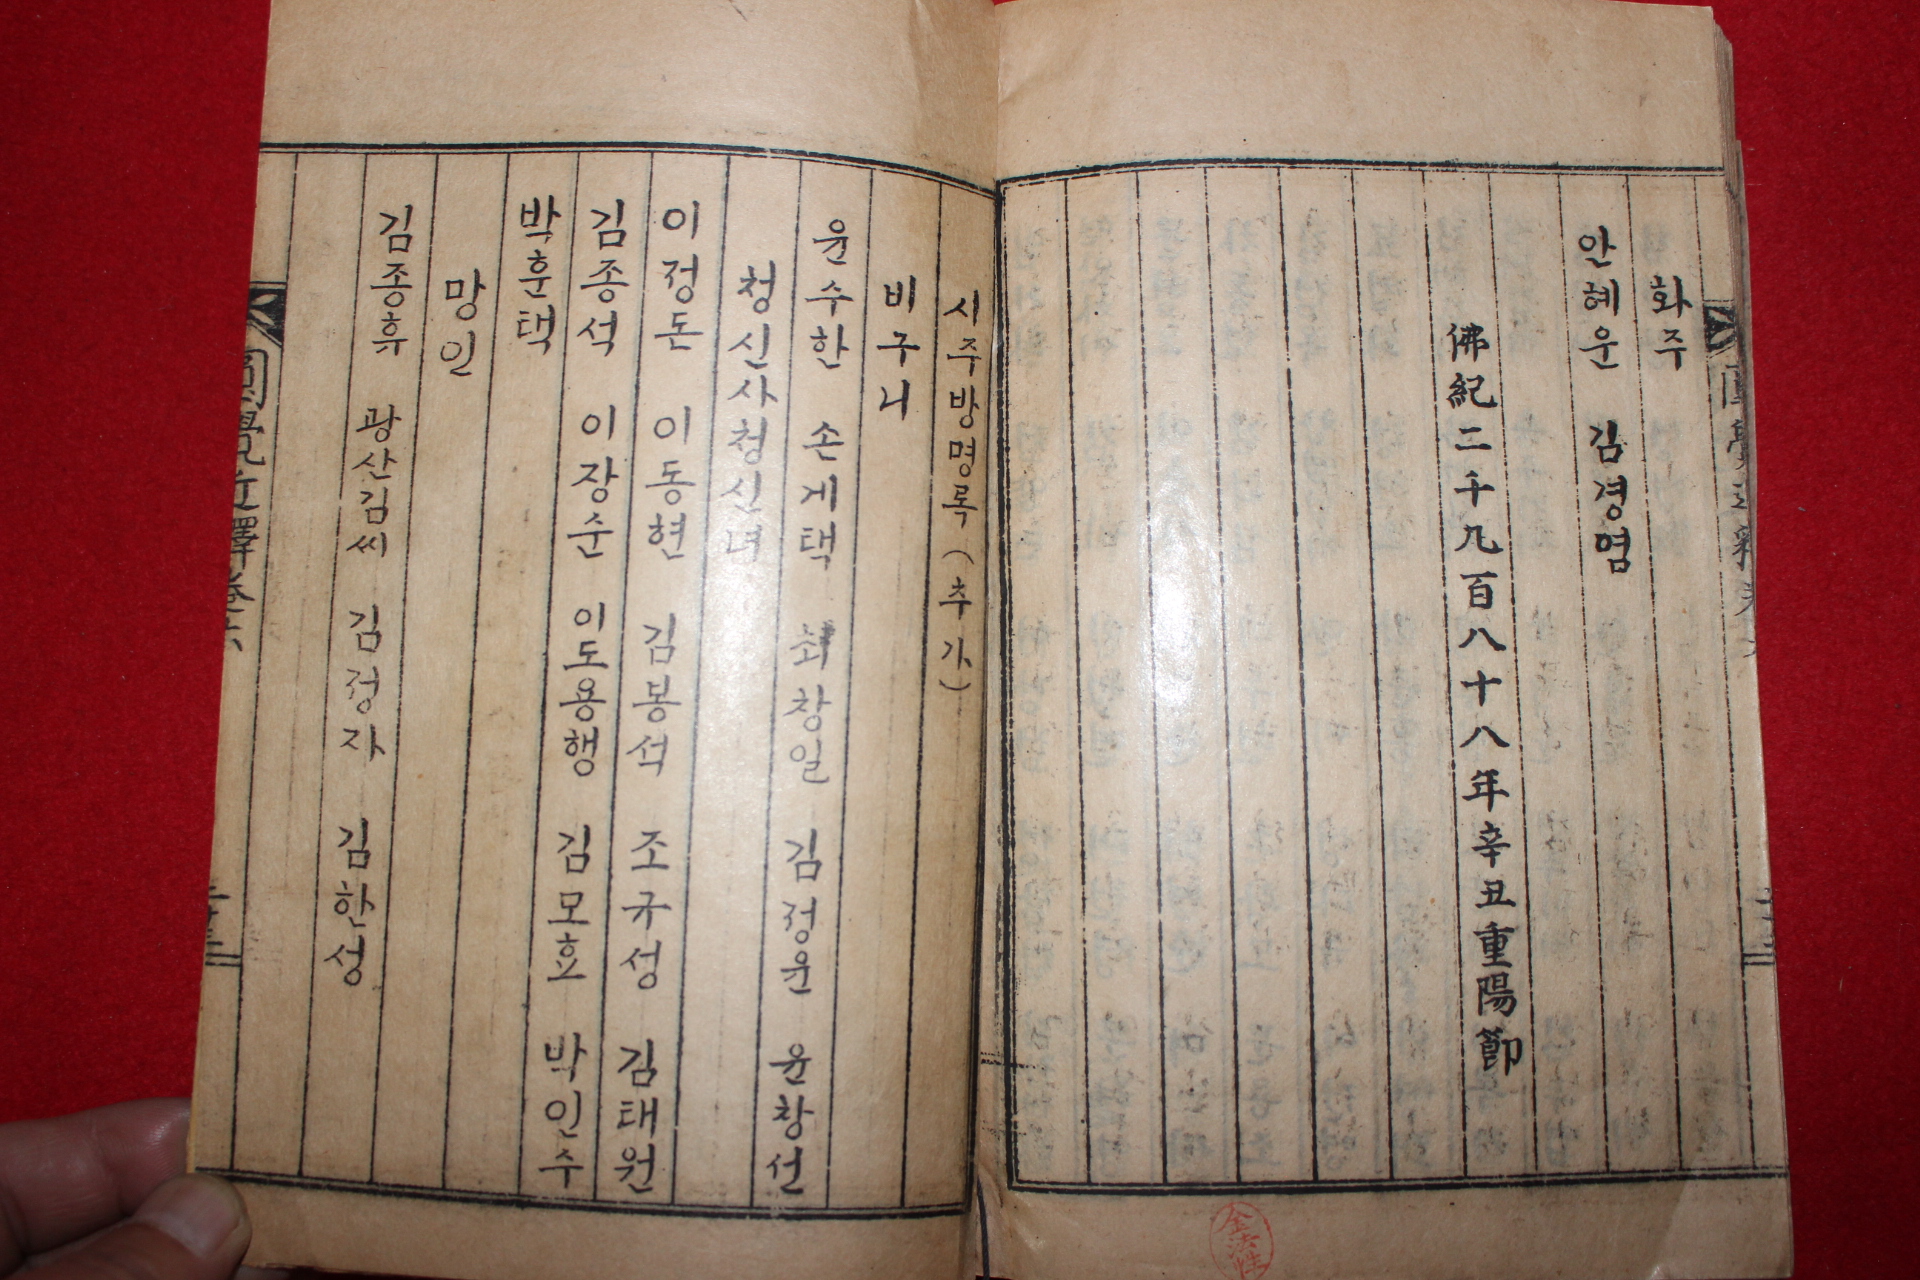 화주
안혜운 김경염
佛紀二千九百八十八年辛丑重陽節
시주방명록(추가)
비구니
윤수한 손계택 최창일 김정운 윤창선
청신사청신녀
이정돈 이동현 김봉석 조규성 김태원
김종석 이장순 이도용행 김모효 박인수
박훈택
망인
김종휴 광산김씨 김정자 김한성
圓覺近釋卷六
金法性